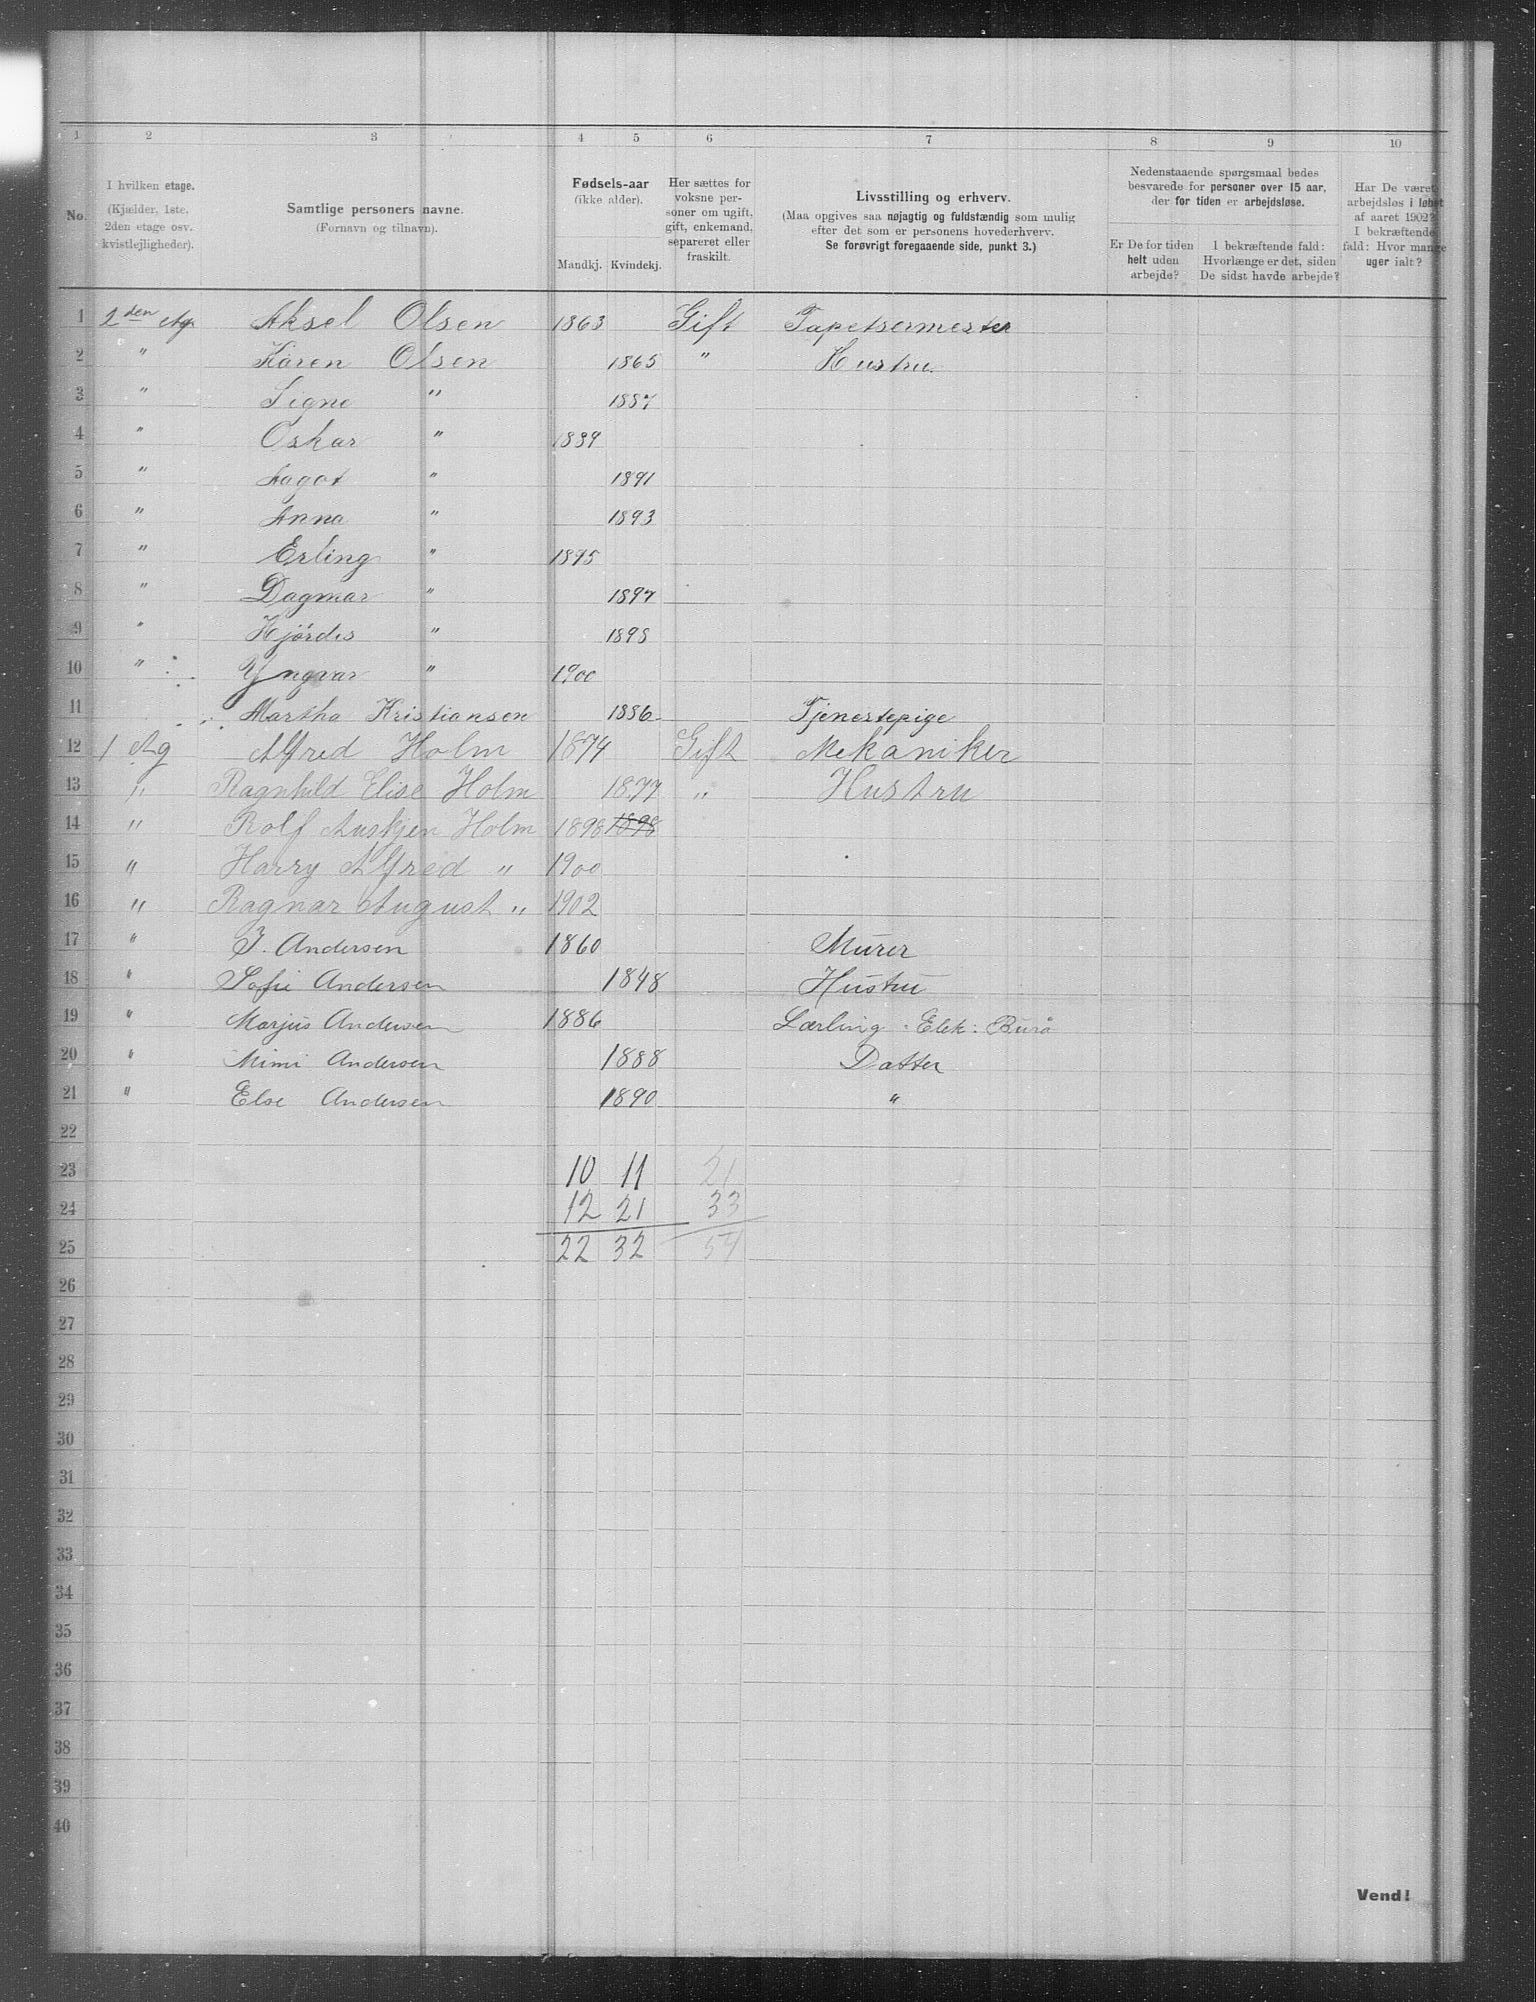 1 2 3 4 5 6 7 8 9 10
No. I hvilken etage. (Kjælder, 1ste, 2den etage osv. kvistlejligheder). Samtlige personers navne. (Fornavn og tilnavn). Fødsels-aar (ikke alder). Mandkj. Kvindekj. Her sættes for voksne personer om ugift, gift, enkemand, separeret eller fraskilt. Livsstilling og erhverv. (Maa opgives saa nøjagtig og fuldstændig som mulig efter det som er personens hovederhverv. Se forøvrigt foregaaende side, punkt 3.) Nedenstaaende spørgsmaal bedes besvarede for personer over 15 aar, der for tiden er arbejdsløse. Er De for tiden helt uden arbejde? I bekræftende fald: Hvorlænge er det, siden De sidst havde arbejde? Har De været arbejdsløs i løbet af aaret 1902? I bekræftende fald: Hvor mange uger ialt?
1 2den Etg Aksel Olsen 1863 Gift Tapetsermester
2 " Karen Olsen 1865 " Hustru.
3 " Signe " 1887
4 " Oskar " 1889
5 " Aagot " 1891
6 " Anna " 1893
7 " Erling " 1895
8 " Dagmar " 1897
9 " Hjördis " 1898
10 " Yngvar " 1900
11 Martha Kristiansen 1886 Tjenestepige
12 1 Etg Alfred Holm 1874 Gift Mekaniker
13 " Ragnhild Elise Holm 1877 " Hustru
14 " Rolf Auskjen Holm 1898 1898
15 " Harry Alfred " 1900
16 " Ragnar August " 1902
17 " J. Andersen 1860 Murer
18 " Sofie Andersen 1848 Hustru
19 " Marjus Andersen 1886 Lærling . Elek: Burö
20 " Mimi Andersen 1888 Datter
21 " Else Andersen 1890 "
22
23 10 11 21
24 12 21 33
25 22 32 54
26
27
28
29
30
31
32
33
34
35
36
37
38
39
40
Vend!